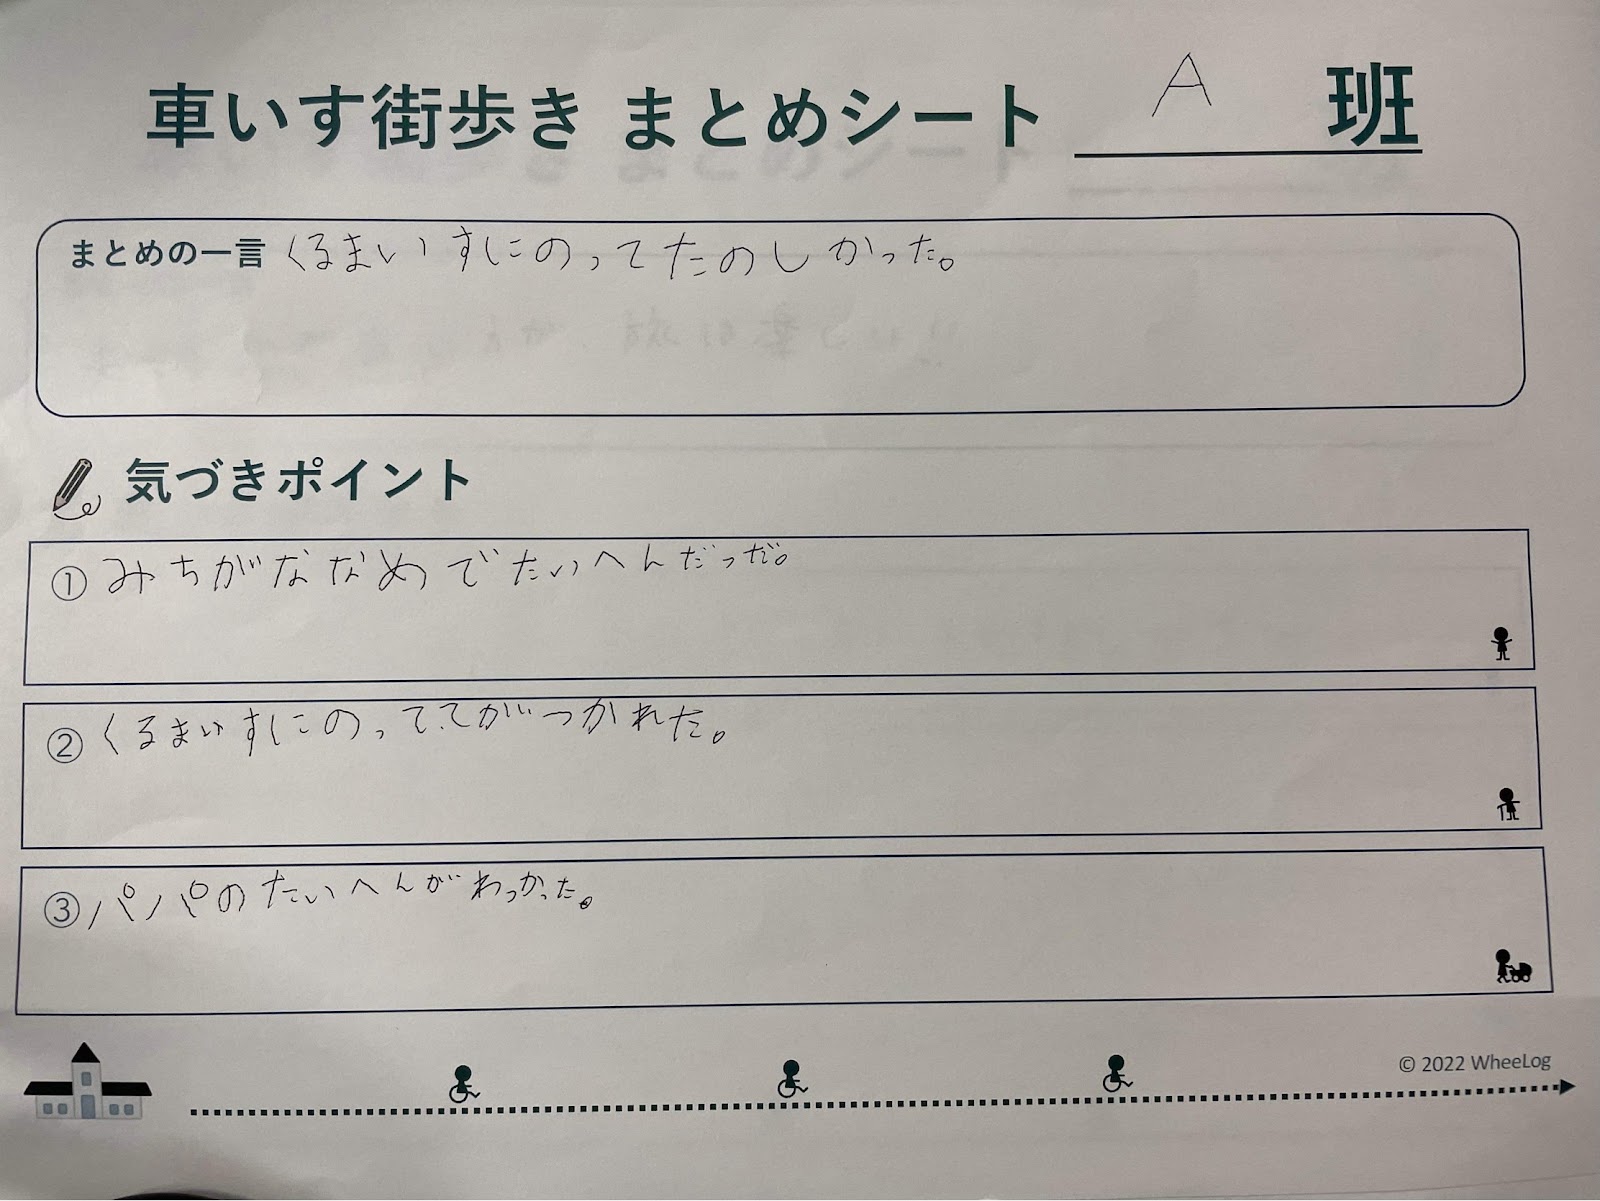 車いす街歩き まとめシート A 班
まとめの一言 くるまいすにのってたのしかった。
気づきポイント
① みちがななめでたいへんだっだ。
② くるまいすにのっててがつかれた。
③ パパのたいへんがわっかった。
© 2022 WheeLog